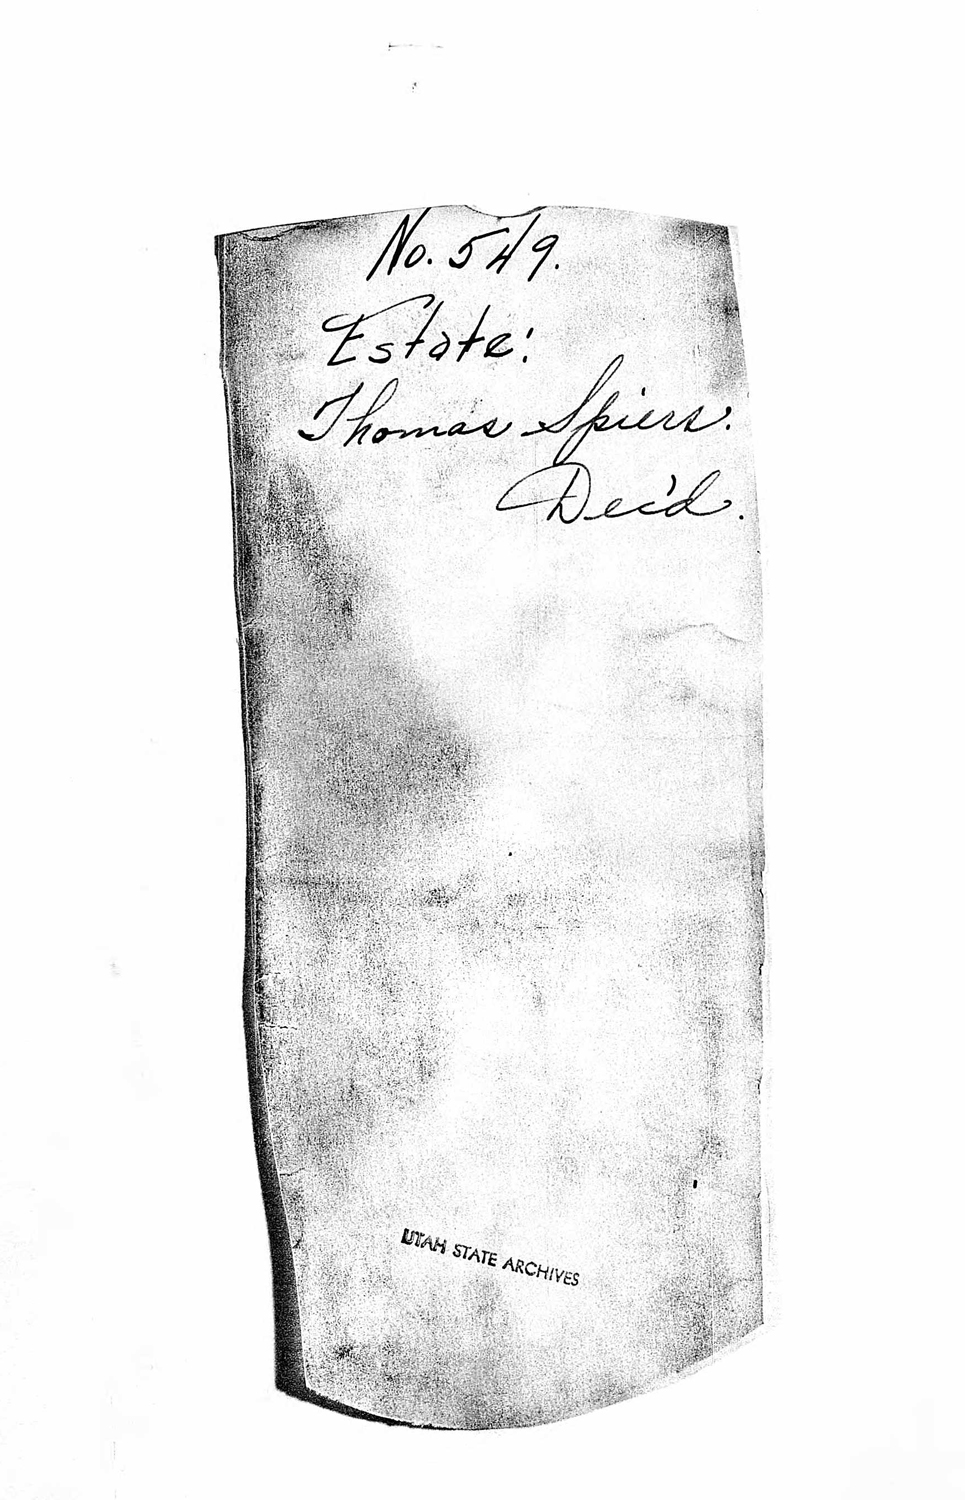 No. 549.
Estate:
Thomas Spiers.
Dec'd.
UTAH STATE ARCHIVES